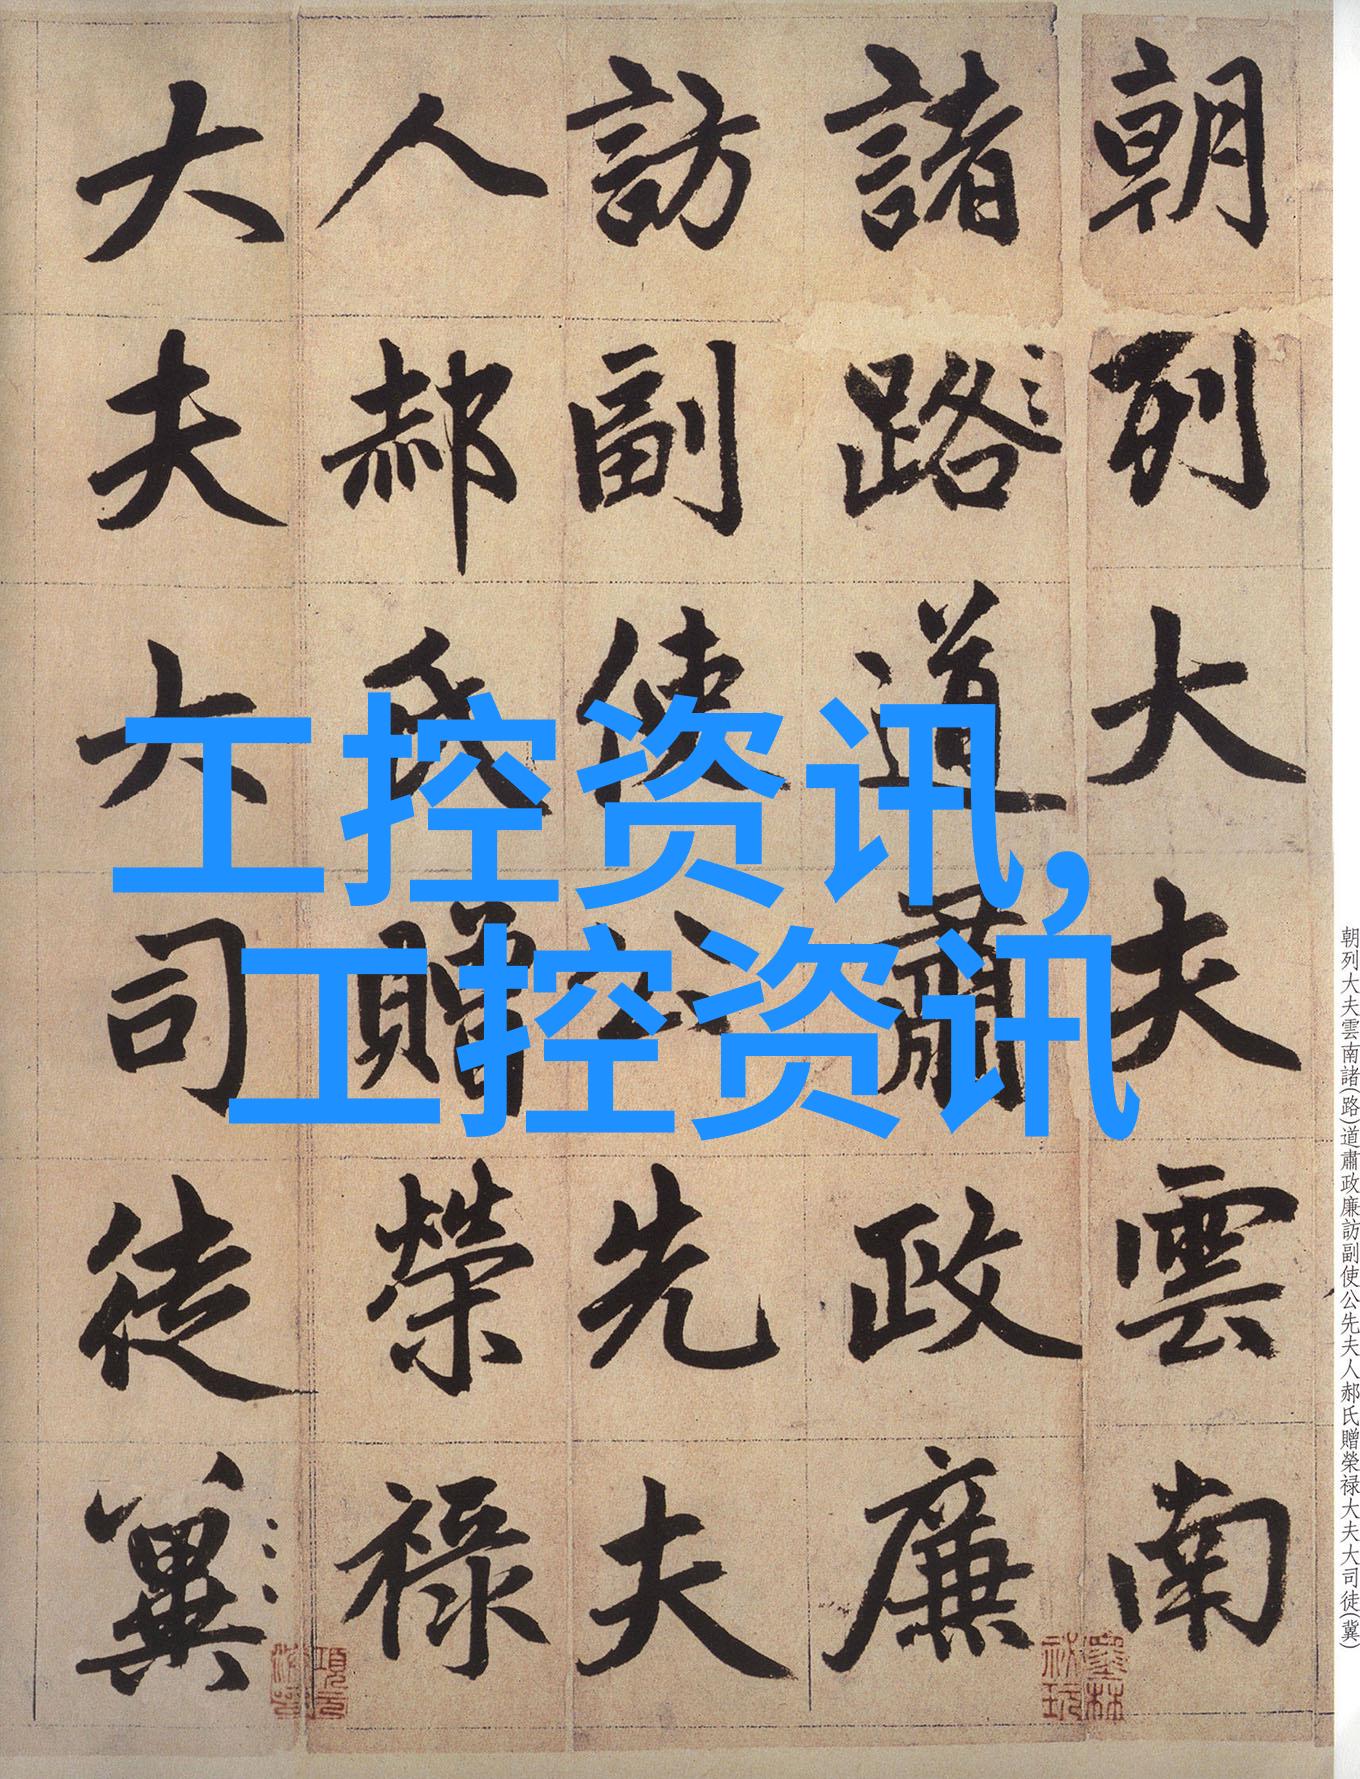 朝列大夫雲南
諸路道肅政廉
訪副使公先夫
人郝氏贈榮禄
大夫大司徒冀
工控资讯,
工控资讯
朝列大夫雲南諸(路)道肅政廉訪副使公先夫人郝氏贈榮禄大夫大司徒(冀)